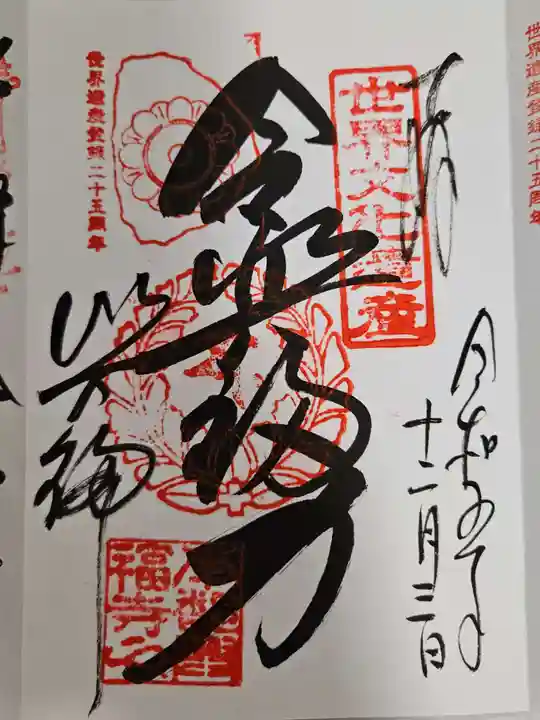 世界遺産登録二十五周年
奉拝
世界文化遺産
令和五年
十二月三日
令興福力
世界遺産登録二十五周年
興福寺